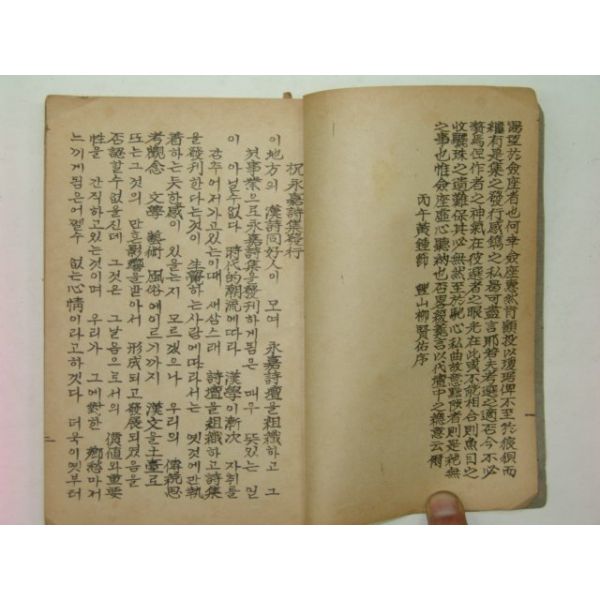 渴望於僉座者也何幸僉座惠然肯顧投以瓊琚俾不至於狼狽而
繼有是集之發行感鐫之私曷可盡言耶若夫考選之適否今不必
贅焉但作者之神氣在彼選者之眼光在此或不能相合則魚目之
收驪珠之遺難保其必無然至於馳心私曲故意黜陟者則是絶無
之事也惟僉座虛心聽納也否畧綴蕪言以代壇中之穗意云爾
丙午黃鍾節 鯉山柳賢佑序
祝永嘉詩集發行
이 地方의 漢詩同好人이 모여 永嘉詩壇을 組織하고 그
첫事業으로 永嘉詩集을 發刊하게됨은 매우 뜻있는 일
이 아닐수없다 時代的潮流에따라 漢學이 漸次 자취를
감추어서가고있는이때 새삼스래 詩壇을 組織하고 詩集
을 發刊한다는것이 生覺하는사람에따라서는 옛것에만執
着하는듯한感이 있을는지 모르겠으나 우리의 傳統思
考觀念 文學 藝術 風俗에이르기까지 漢文을 土臺로
또는 그것의 많은影響을받아서 形成되고 發展되었음을
否認할수없을진데 그것은 그날음으로서의 價値와 重要
性을 간직하고있는것이며 우리가 그에對한 鄕愁마저
느끼게됨은어쩔수 없는心情이라고하겠다 더욱이옛부터